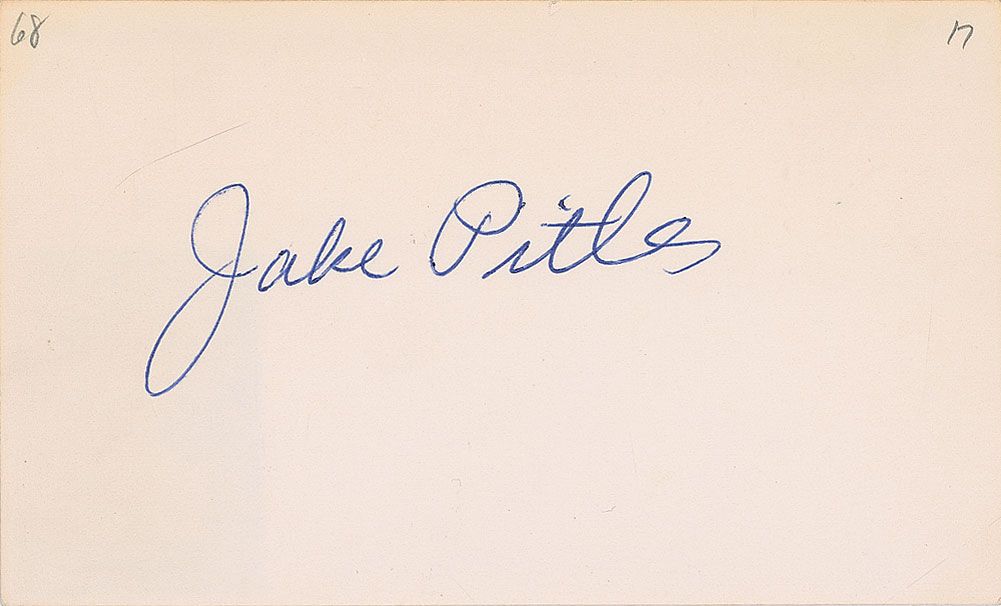 68 17
Jake Pitler